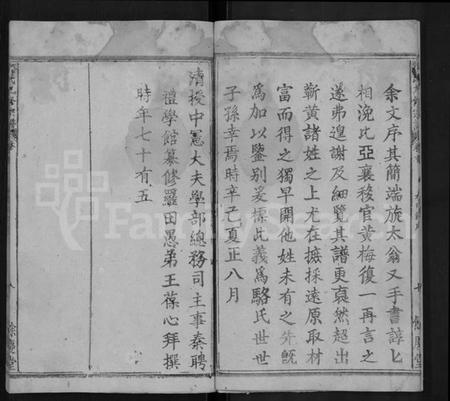 余文序其簡端旋太翁又手書諄匕
相浼比亞襄移官黃梅復一再言之
遂弗遑謝及細覽其譜更裒然超出
蘄黃諸姓之上尤在摭採遠原取材
富而得之獨早開他姓未有之先既
為加以鑒別爰據此義為駱氏世世
子孫幸焉時辛巳夏正八月
清授中憲大夫學部總務司主事奏聘
禮學館纂修羅田愚弟王葆心拜撰
時年七十有五
FamilySearch